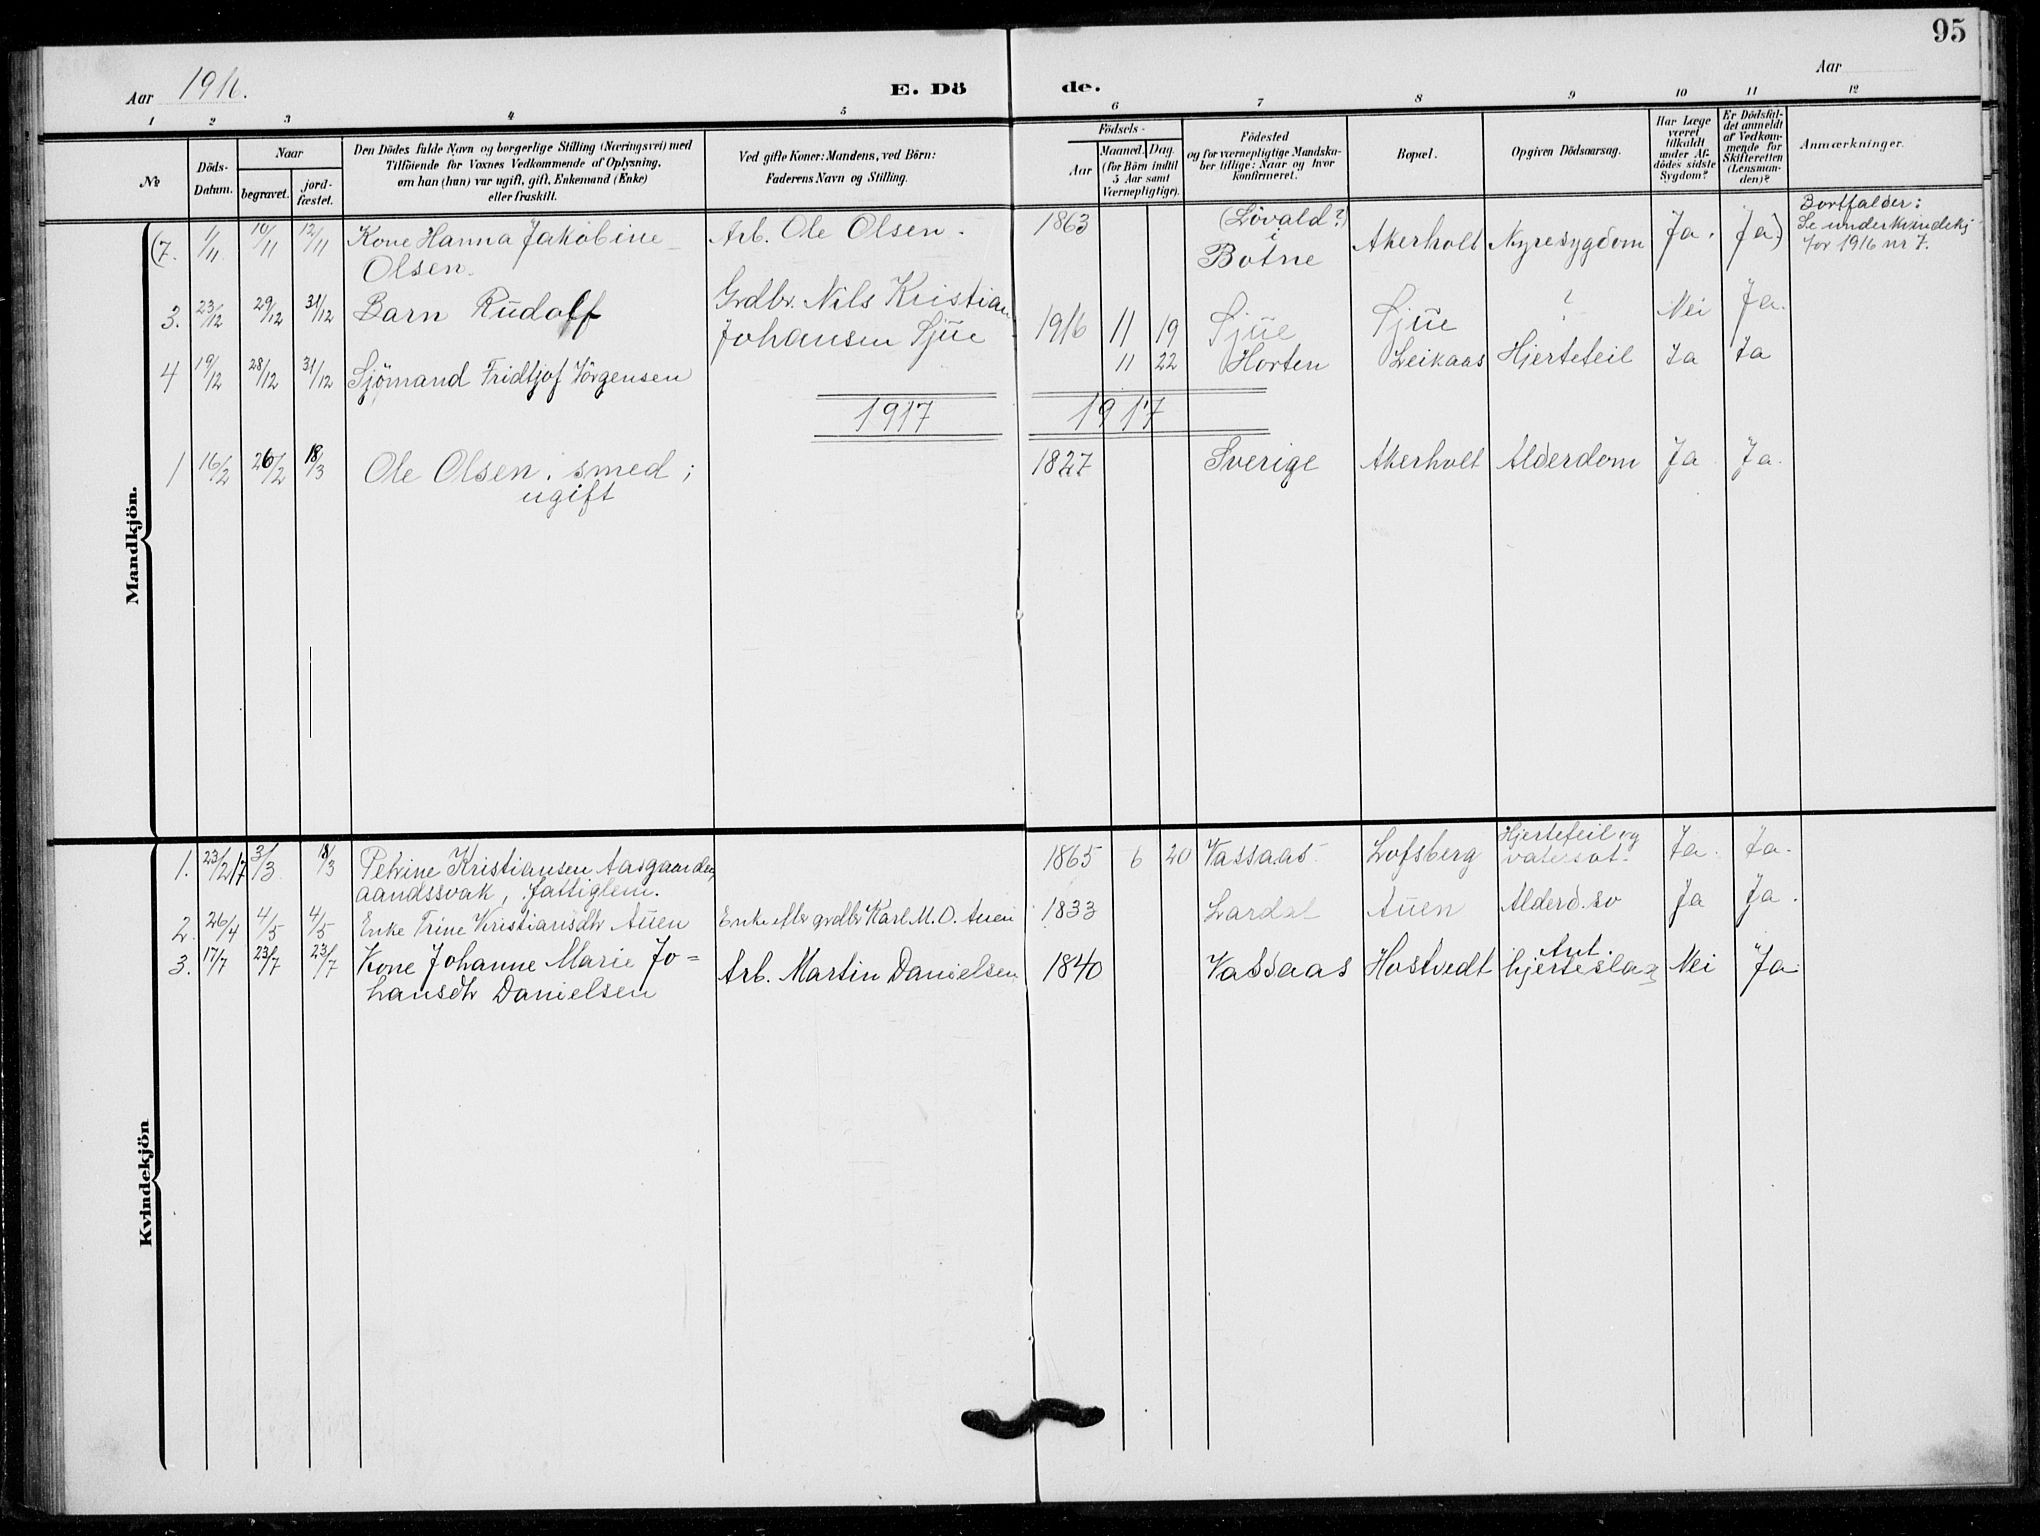 95
Aar 1916.
E. Dö de.
Aar
1 2 3 4 5 6 7 8 9 10 11 12
№
Döds-
Datum.
Naar
begravet.
jord-
fæstet.
Den Dödes fulde Navn og borgerlige Stilling (Næringsvei) med
Tilföiende for Voxnes Vedkommende af Oplysning,
om han (hun) var ugift, gift, Enkemand (Enke)
eller fraskilt.
Ved gifte Koner: Mandens, ved Börn:
Faderens Navn og Stilling.
Födsels-
Aar
Maaned. Dag.
(for Börn indtil
5 Aar samt
Værnepligtige).
Födested
og for værnepligtige Mandska-
ber tillige: Naar og hvor
konfirmeret.
Bopæl.
Opgiven Dödsaarsag.
Har Læge
været
tilkaldt
under Af-
dödes sidste
Sygdom?
Er Dödsfal-
det anmeldt
af Vedkom-
mende for
Skifteretten
(Lensman-
den)?
Anmærkninger.
Mandkjön.
(7. 1/11 10/11 12/11 Kone Hanna Jakobine Arb. Ole Olsen. 1863 (Lövald?) Akerholt Nyresygdom Ja. Ja) Bortfalder:
Olsen. i Botne Se under kvindekj
for 1916 nr 7.
3. 23/12 29/12 31/12 Barn Rudolf Grdbr. Nils Kristian
Johansen Sjue 1916 11 19 Sjue Sjue ? Nei Ja.
4 19/12 28/12 31/12 Sjömand Fridtjof Jörgensen 11 22 Horten Leikaas Hjertefeil Ja Ja
1917 1917
1 16/2 26/2 18/3 Ole Olsen, smed; 1827 Sverige Akerholt Alderdom Ja Ja.
ugift
Kvindekjön
1. 23/2 17 3/3 18/3 Petrine Kristiansen Aasgaarden, 1865 6 20 Vassaas Lofsberg Hjertefeil og Ja. Ja.
aandssvak, fattiglem. vatersot.
2. 26/4 4/5 4/5 Enke Trine Kristiansdtr Auen Enke efter grdbr Karl M. O. Auen 1833 Lardal Auen Alderd.so Ja Ja.
3. 17/7 23/7 23/7 Kone Johanne Marie Jo= Arb. Martin Danielsen 1840 Vassaas Hostvedt Ant. Nei Ja.
hansdtr Danielsen hjerteslag